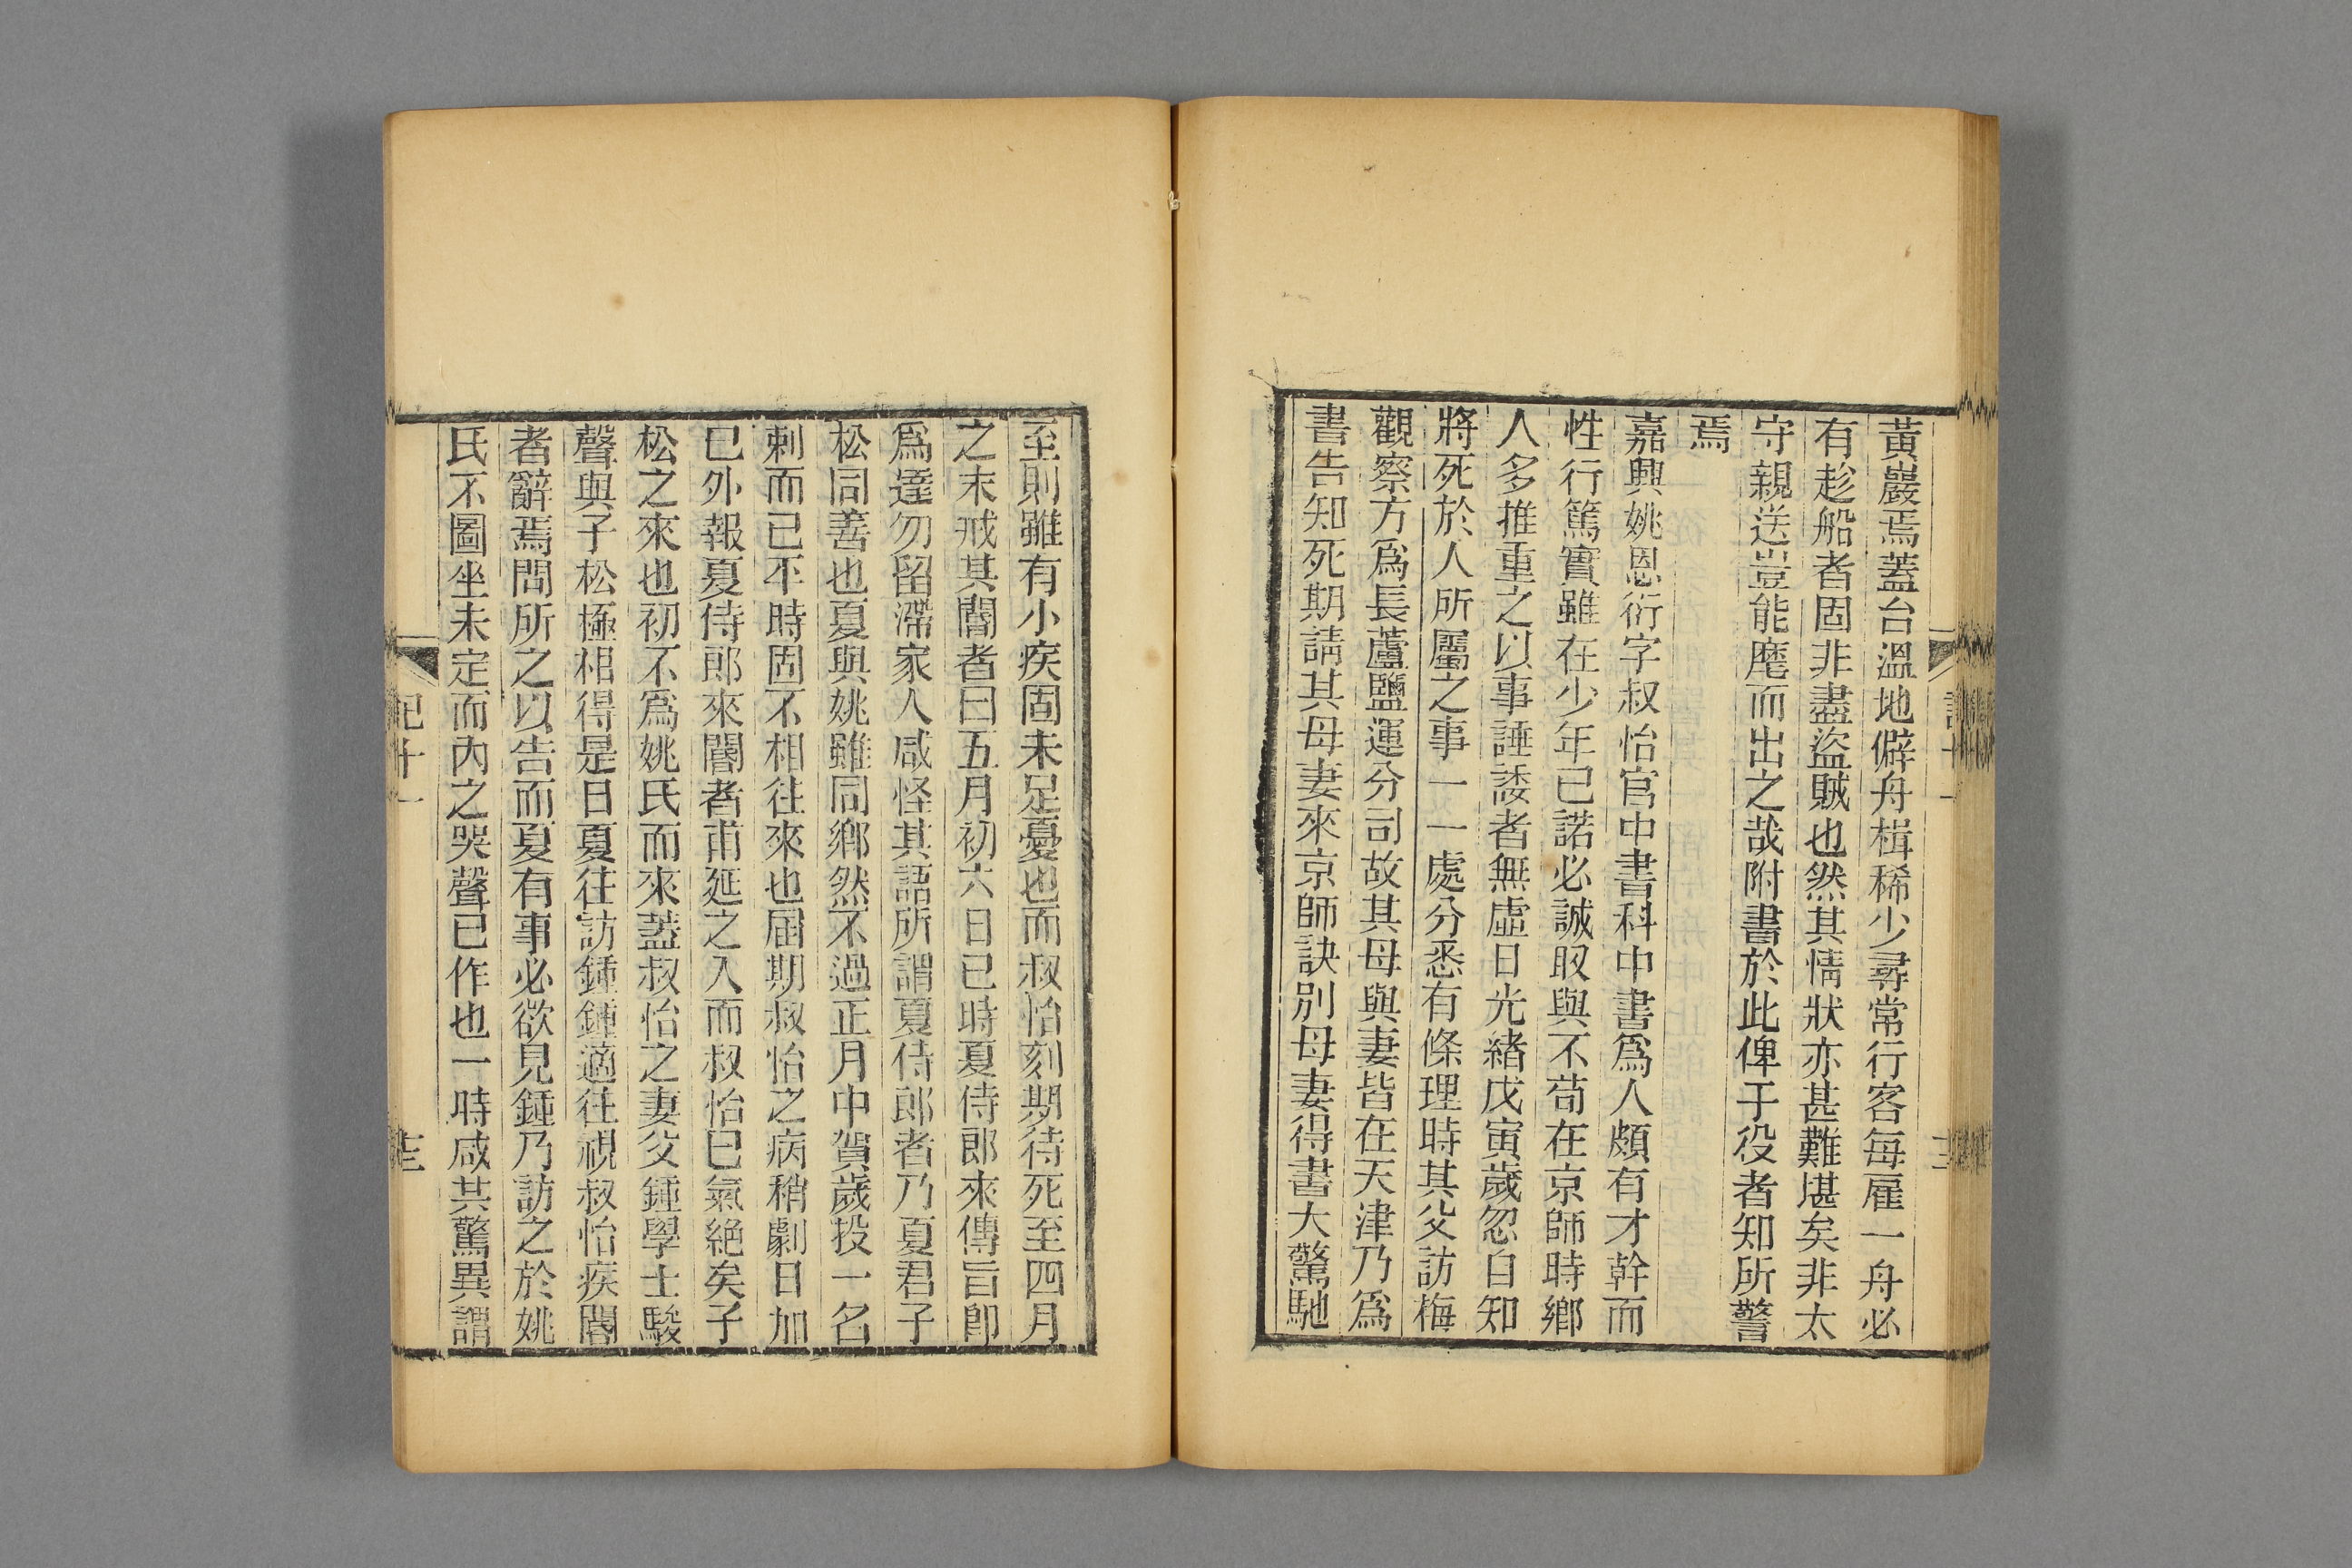 黃巖焉蓋台溫地僻舟楫稀少尋常行客每雇一舟必
有趁船者固非盡盜賊也然其情狀亦甚難堪矣非太
守親送豈能麾而出之哉附書於此俾于役者知所警
焉
嘉興姚恩衍字叔怡官中書科中書爲人頗有才幹而
性行篤實雖在少年已諾必誠取與不苟在京師時鄉
人多推重之以事諈諉者無虛日光緒戊寅歲忽自知
將死於人所屬之事一一處分悉有條理時其父訪梅
觀察方爲長蘆鹽運分司故其母與妻皆在天津乃爲
書告知死期請其母妻來京師訣別母妻得書大驚馳
至則雖有小疾固未足憂也而叔怡刻期待死至四月
之末戒其閽者曰五月初六日巳時夏侍郎來傳旨卽
爲達勿留滯家人咸怪其語所謂夏侍郎者乃夏君子
松同善也夏與姚雖同鄉然不過正月中賀歲投一名
刺而已平時固不相往來也届期叔怡之病稍劇日加
巳外報夏侍郎來閽者甫延之入而叔怡已氣絶矣子
松之來也初不爲姚氏而來蓋叔怡之妻父鍾學士駿
聲與子松極相得是日夏往訪鍾鍾適往視叔怡疾閽
者辭焉問所之以告而夏有事必欲見鍾乃訪之於姚
氏不圖坐未定而內之哭聲已作也一時咸共驚異謂
記十一